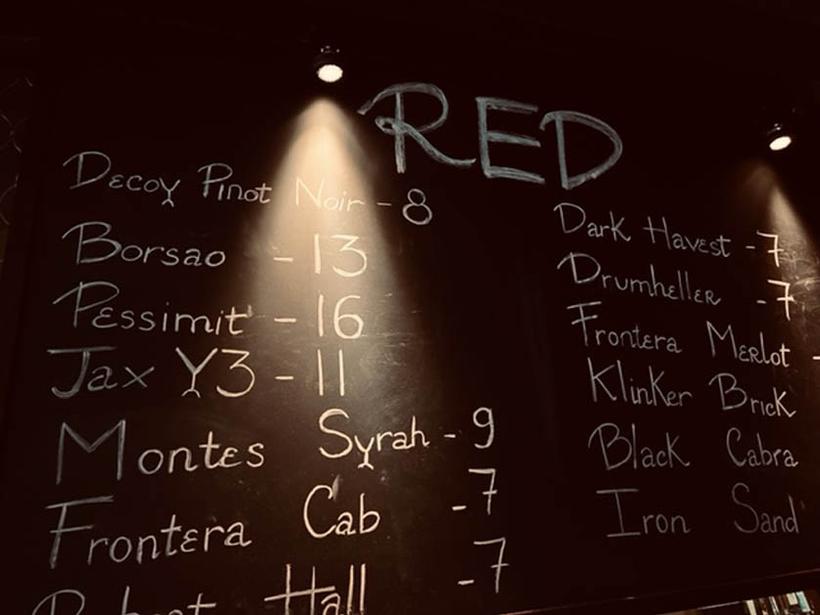 RED
Decoy Pinot Noir - 8
Borsao - 13
Pessimit - 16
Jax Y3 - 11
Montes Syrah - 9
Frontera Cab - 7
Hall - 7
Dark Havest - 7
Drumheller - 7
Frontera Merlot -
Klinker Brick
Black Cabra
Iron Sand